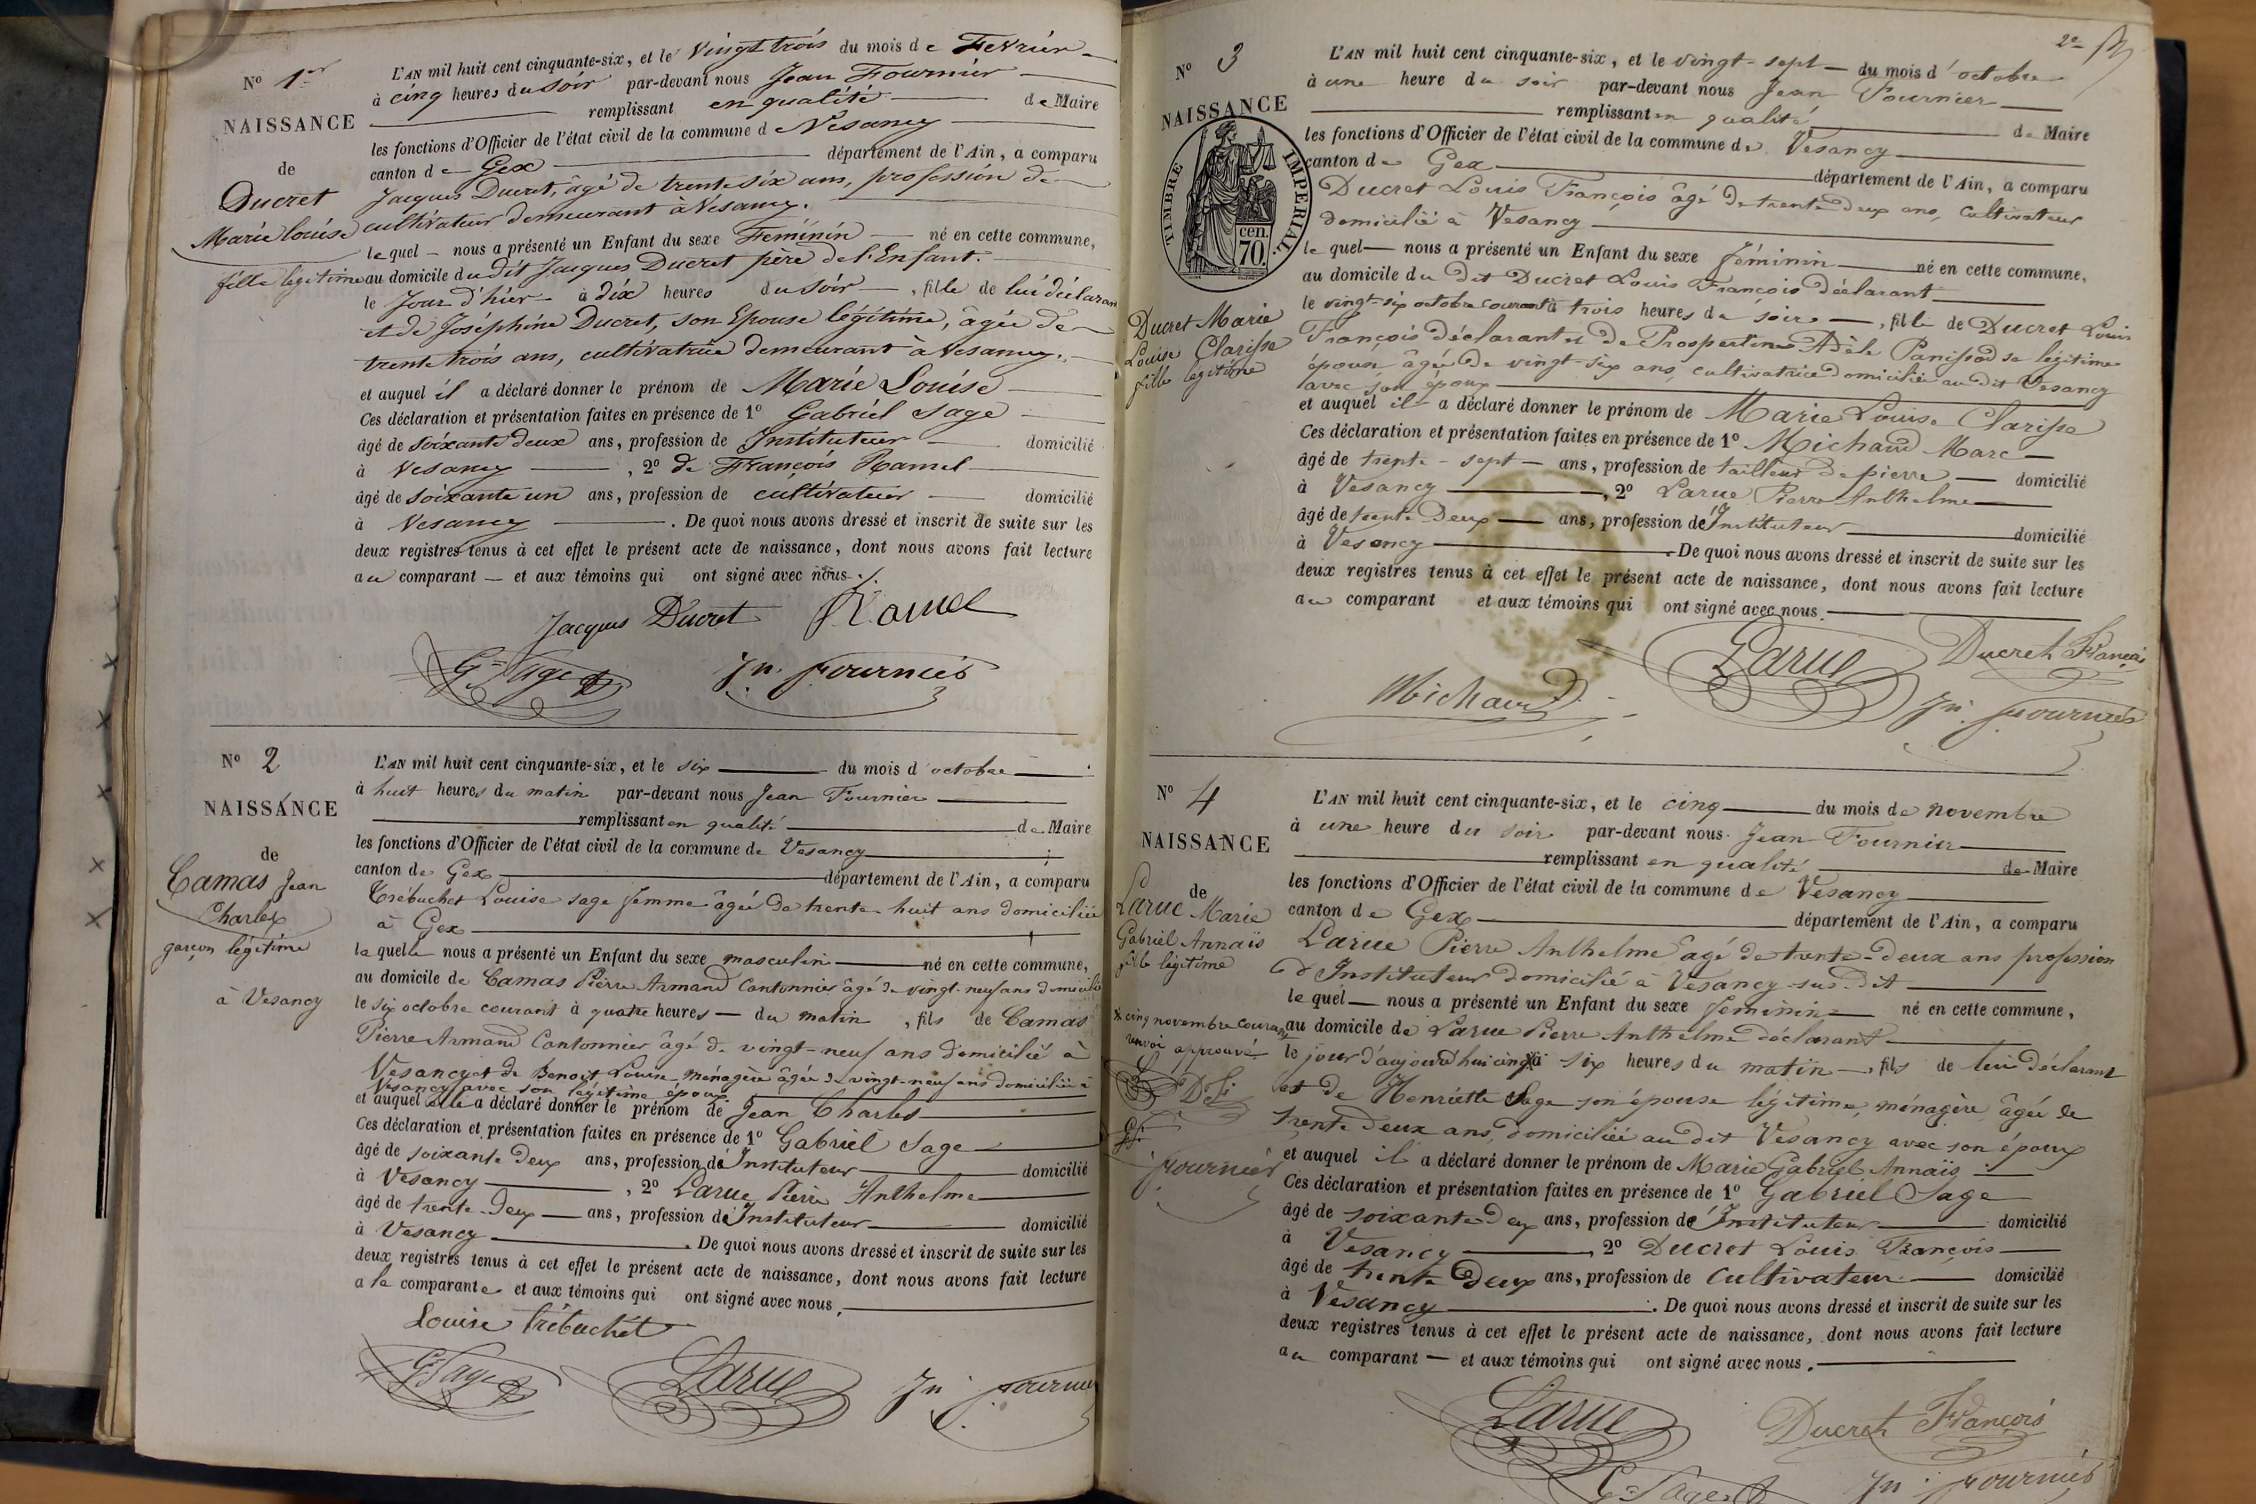 Nº 1er
NAISSANCE
de
Ducret
Marie Louise
fille légitime
L'AN mil huit cent cinquante-six, et le vingt trois du mois de Fevrier
à cinq heures du soir par-devant nous Jean Fournier
remplissant en qualité de Maire
les fonctions d'Officier de l'état civil de la commune d Vesancy
canton de Gex département de l'Ain, a comparu
Jacques Ducret, âgé de trente six ans, profession de
cultivateur demeurant à Vesancy.
lequel nous a présenté un Enfant du sexe Féminin né en cette commune,
au domicile du dit Jacques Ducret père de l'Enfant.
le Jour d'hier à dix heures du soir, fille de lui déclarant
et de Joséphine Ducret, son Epouse légitime, âgée de
trente trois ans, cultivatrice demeurant à Vesancy.
et auquel il a déclaré donner le prénom de Marie Louise
Ces déclaration et présentation faites en présence de 1º Gabriel Sage
âgé de soixante deux ans, profession de Instituteur domicilié
à Vesancy, 2º de François Ramel
âgé de soixante un ans, profession de cultivateur domicilié
à Vesancy. De quoi nous avons dressé et inscrit de suite sur les
deux registres tenus à cet effet le présent acte de naissance, dont nous avons fait lecture
au comparant et aux témoins qui ont signé avec nous ./.
Jacques Ducret Ramel
G. Sage Jn. Fournier
Nº 2
NAISSANCE
de
Camas Jean
Charles
garçon légitime
à Vesancy
L'AN mil huit cent cinquante-six, et le six du mois d'octobre
à huit heures du matin par-devant nous Jean Fournier
remplissant en qualité de Maire
les fonctions d'Officier de l'état civil de la commune de Vesancy
canton de Gex département de l'Ain, a comparu
Trébuchet Louise sage femme âgée de trente-huit ans domiciliée
à Gex
laquelle nous a présenté un Enfant du sexe masculin né en cette commune,
au domicile de Camas Pierre Armand Cantonnier âgé de vingt-neuf ans domicilié
le six octobre courant à quatre heures du matin, fils de Camas
Pierre Armand Cantonnier âgé de vingt-neuf ans domicilié à
Vesancy et de Benoit Louise ménagère âgée de vingt-neuf ans domiciliée à
Vesancy avec son légitime époux
et auquel elle a déclaré donner le prénom de Jean Charles
Ces déclaration et présentation faites en présence de 1º Gabriel Sage
âgé de soixante deux ans, profession d'Instituteur domicilié
à Vesancy, 2º Larue Pierre Anthelme
âgé de trente-deux ans, profession d'Instituteur domicilié
à Vesancy. De quoi nous avons dressé et inscrit de suite sur les
deux registres tenus à cet effet le présent acte de naissance, dont nous avons fait lecture
a la comparante et aux témoins qui ont signé avec nous.
Louise Trébuchet
G. Sage Larue Jn. Fournier
2e
Nº 3
NAISSANCE
TIMBRE IMPERIAL
cen.
70.
Ducret Marie
Louise Clarisse
fille légitime
L'AN mil huit cent cinquante-six, et le vingt-sept du mois d'octobre
à une heure du soir par-devant nous Jean Fournier
remplissant en qualité de Maire
les fonctions d'Officier de l'état civil de la commune de Vesancy
canton de Gex département de l'Ain, a comparu
Ducret Louis François âgé de trente deux ans, cultivateur
domicilié à Vesancy
lequel nous a présenté un Enfant du sexe féminin né en cette commune,
au domicile du dit Ducret Louis François déclarant
le vingt-six octobre courant à trois heures du soir, fille de Ducret Louis
François déclarant et de Prospertine Adèle Panissod sa légitime
épouse âgée de vingt-six ans, cultivatrice domiciliée au dit Vesancy
avec son époux
et auquel il a déclaré donner le prénom de Marie Louise Clarisse
Ces déclaration et présentation faites en présence de 1º Michaud Marc
âgé de trente-sept ans, profession de tailleur de pierre domicilié
à Vesancy, 2º Larue Pierre Anthelme
âgé de trente deux ans, profession d'Instituteur domicilié
à Vesancy. De quoi nous avons dressé et inscrit de suite sur les
deux registres tenus à cet effet le présent acte de naissance, dont nous avons fait lecture
au comparant et aux témoins qui ont signé avec nous.
Larue Ducret François
Michaud Jn. Fournier
Nº 4
NAISSANCE
de
Larue Marie
Gabriel Annaïs
fille légitime
cinq novembre courant
renvoi approuvé
Fournier
L'AN mil huit cent cinquante-six, et le cinq du mois de novembre
à une heure du soir par-devant nous Jean Fournier
remplissant en qualité de Maire
les fonctions d'Officier de l'état civil de la commune de Vesancy
canton de Gex département de l'Ain, a comparu
Larue Pierre Anthelme âgé de trente-deux ans profession
d'Instituteur domicilié à Vesancy sus-dit
lequel nous a présenté un Enfant du sexe féminin né en cette commune,
au domicile de Larue Pierre Anthelme déclarant
le jour d'aujourd'hui cinq à six heures du matin, fils de lui déclarant
et de Henriette Sage son épouse légitime, ménagère âgée de
trente deux ans, domiciliée au dit Vesancy avec son époux
et auquel il a déclaré donner le prénom de Marie Gabriel Annaïs
Ces déclaration et présentation faites en présence de 1º Gabriel Sage
âgé de soixante deux ans, profession d'Instituteur domicilié
à Vesancy, 2º Ducret Louis François
âgé de trente deux ans, profession de cultivateur domicilié
à Vesancy. De quoi nous avons dressé et inscrit de suite sur les
deux registres tenus à cet effet le présent acte de naissance, dont nous avons fait lecture
au comparant et aux témoins qui ont signé avec nous.
Larue Ducret François
G. Sage Jn. Fournier